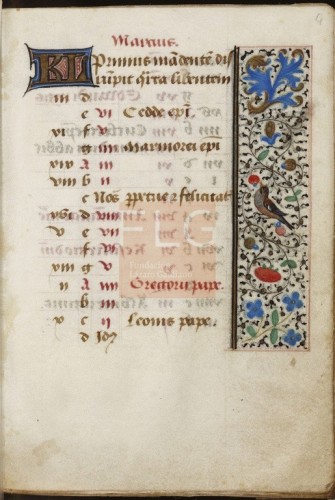 Marcius.
KL Primus mādentē, dis
rūpit qrta bibentem
iii d
e vi Cedde epī
xi f v
g iiii Marinorei epī
xix A iii
viii b ii
c Noś Ppetue ⁊ felicitat
xvi d viii
v e vii
f vi
xiii g v
ii A iiii Gregorii pape.
b iii
x c ii Leonis pape.
d Idꝰ